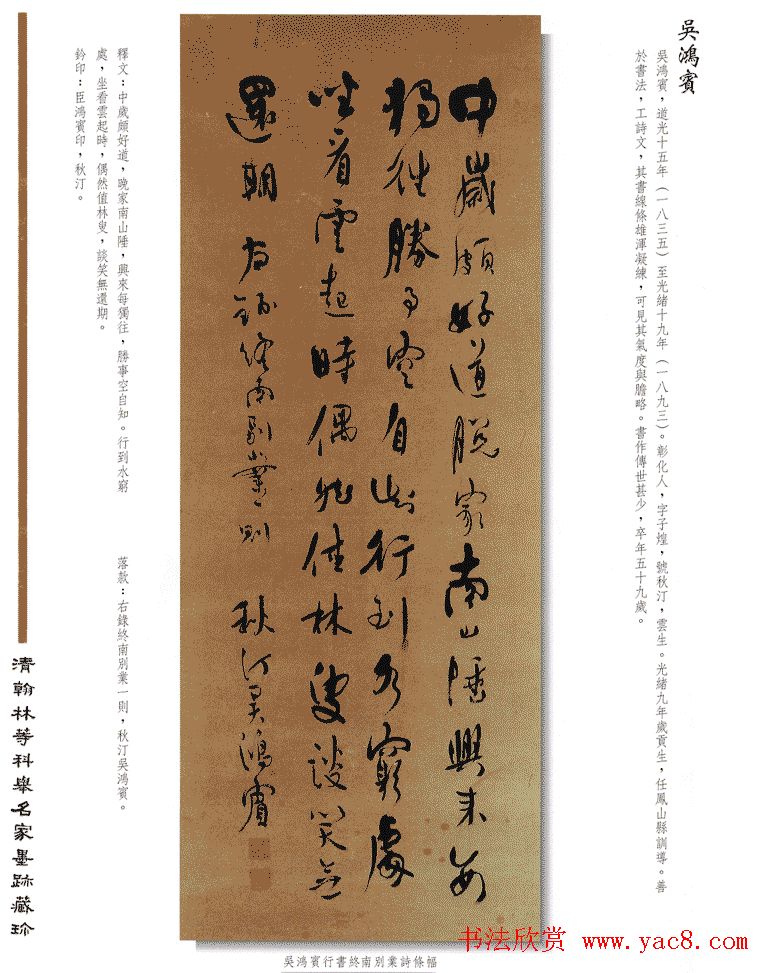 吳鴻賓
吳鴻賓，道光十五年（一八三五）至光緒十九年（一八九三）。彰化人，字子煌，號秋汀，雲生。光緒九年歲貢生，任鳳山縣訓導。善
於書法，工詩文，其書線條雄渾凝練，可見其氣度與膽略。書作傳世甚少，卒年五十九歲。
中歲頗好道晚家南山陲興來每
獨往勝事空自知行到水窮處
坐看雲起時偶然值林叟談笑無
還期 右錄終南別業一則 秋汀吳鴻賓
釋文：中歲頗好道，晚家南山陲，興來每獨往，勝事空自知。行到水窮
處，坐看雲起時，偶然值林叟，談笑無還期。
落款：右錄終南別業一則，秋汀吳鴻賓。
鈐印：臣鴻賓印，秋汀。
清翰林等科舉名家墨跡藏珍
吳鴻賓行書終南別業詩條幅
书法欣赏 www.yac8.com